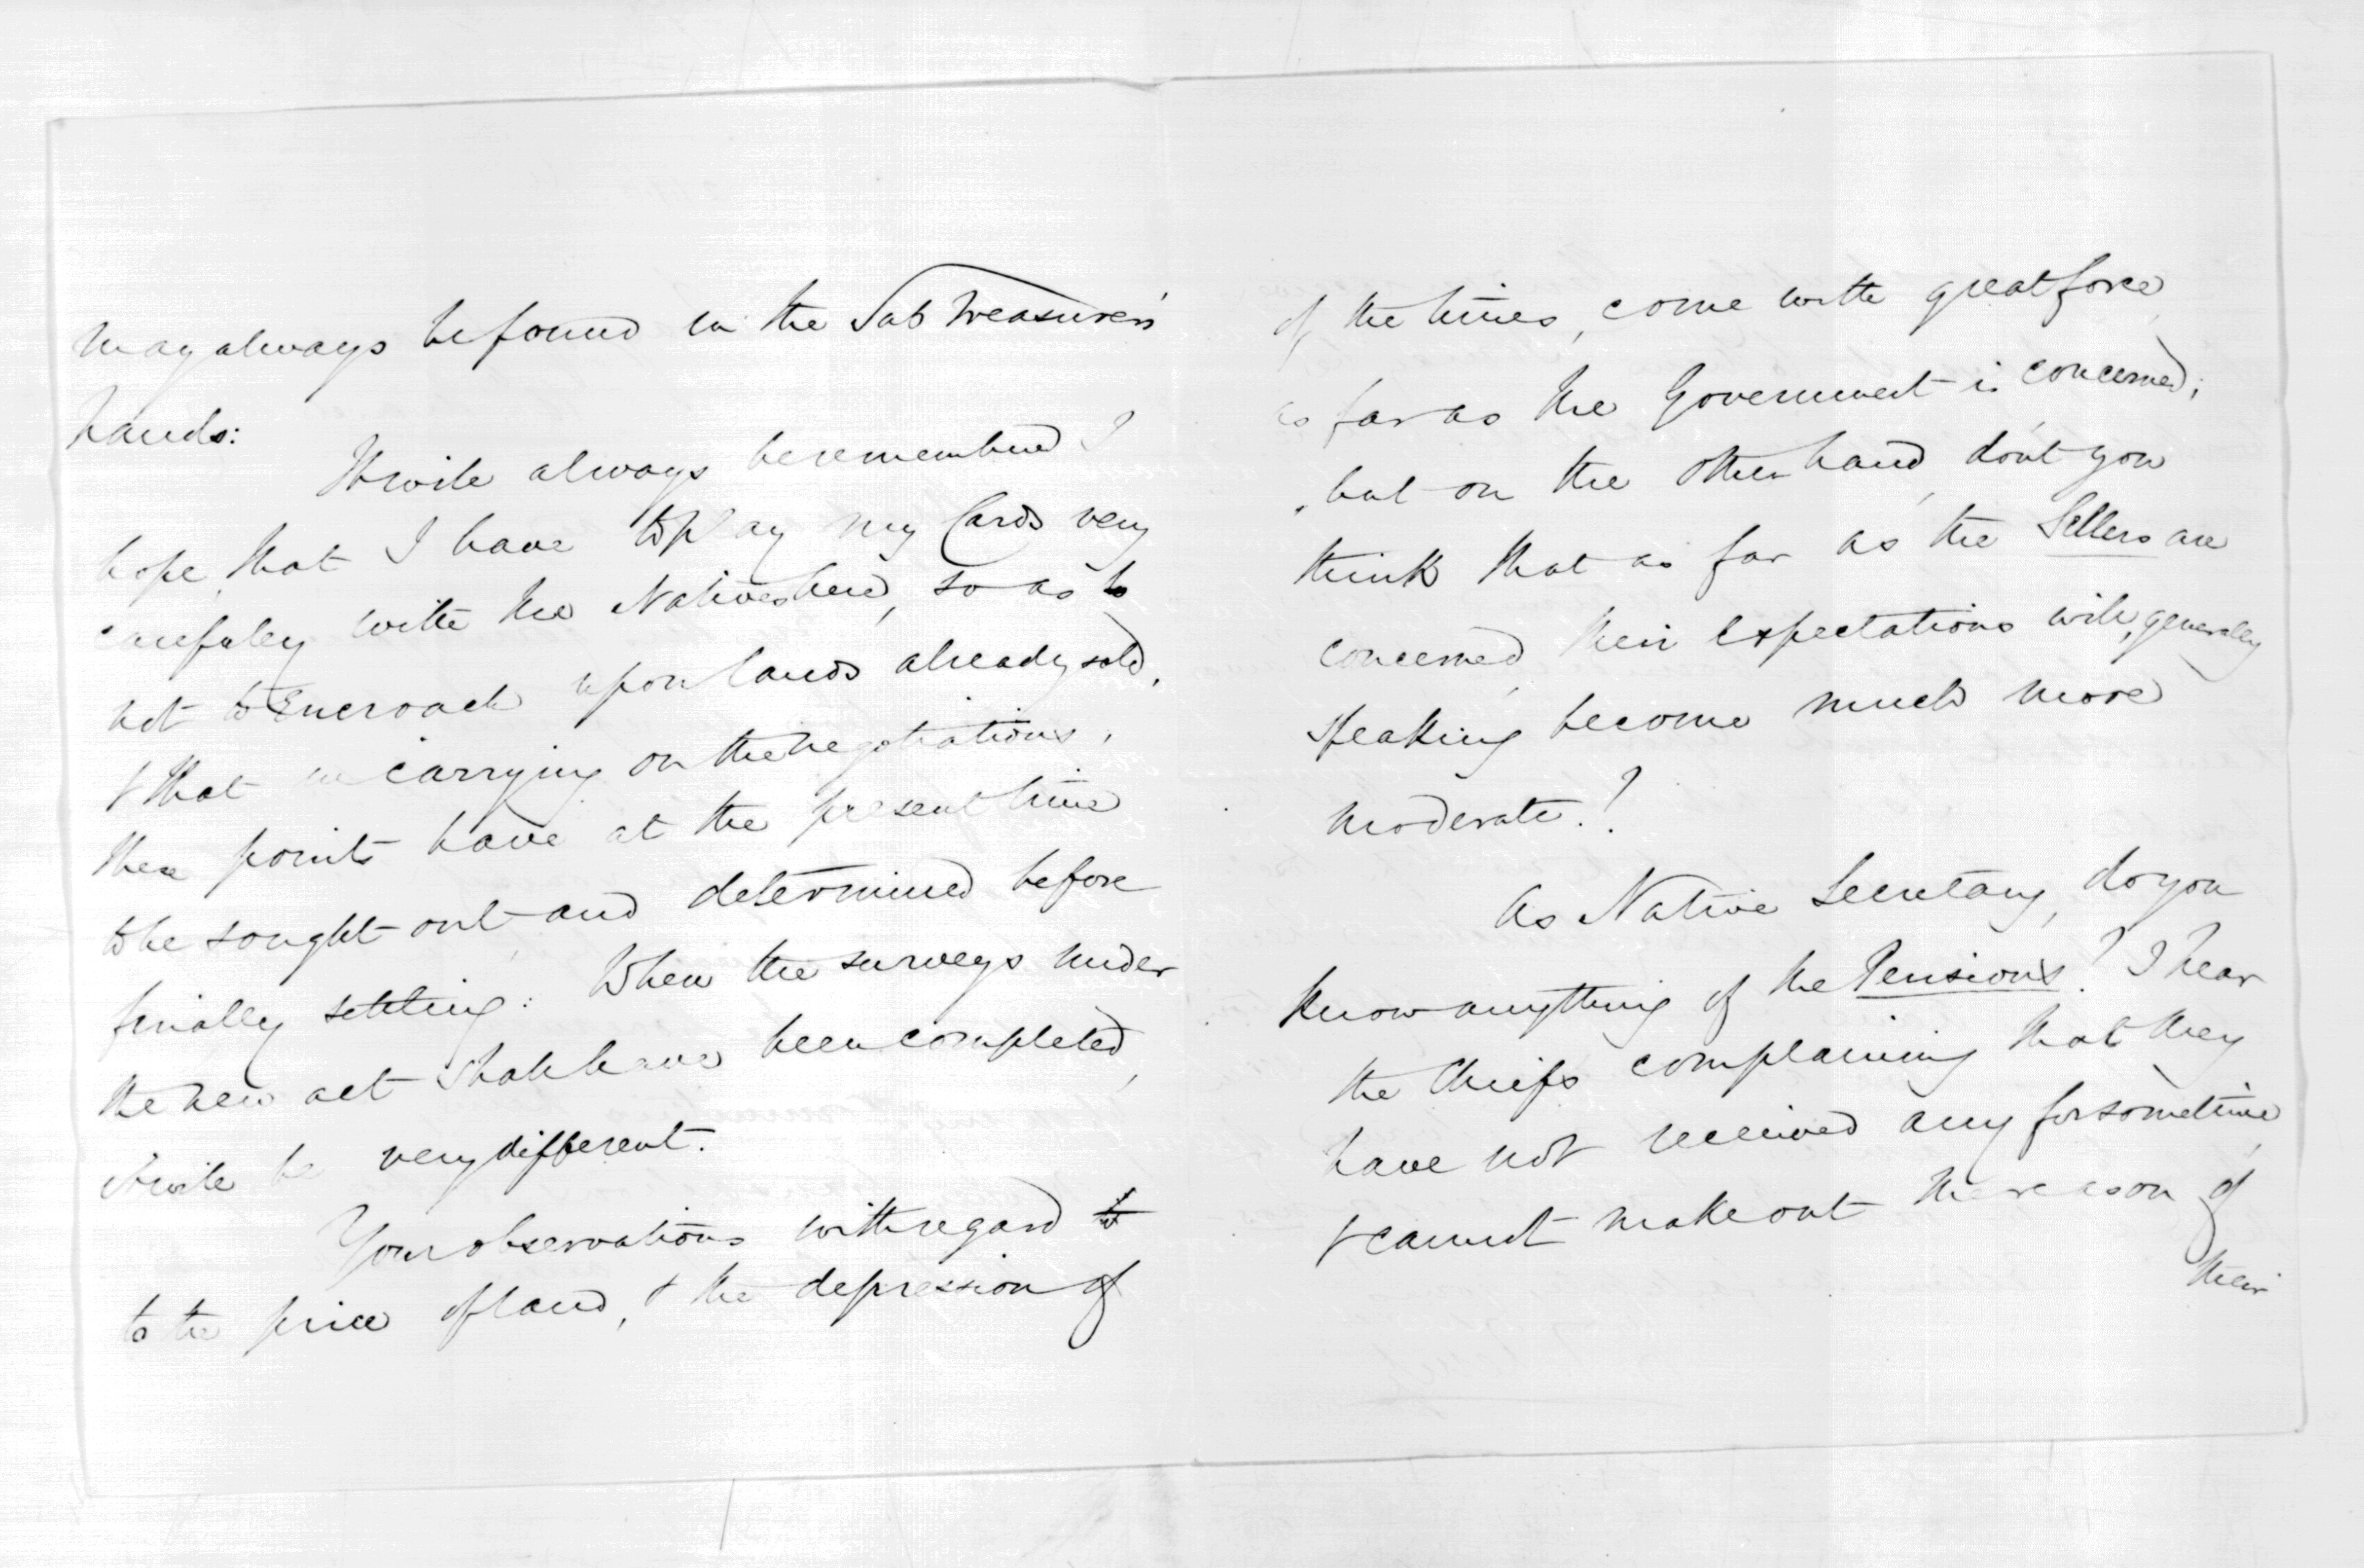 may always be found in the Sub Treasurer's
hands:
It will always be remembered I
hope, that I have to play my Cards very
carefully with the Natives here, so as to
not to Encroach upon lands already sold,
& that in carrying on the negotiations,
these points have at the present time
to be sought out and determined before
finally settling: When the surveys under
the new act shall have been completed,
it will be very different.
Your observations with regard to
to the price of land, & the depression of
of the times, come with great force,
as far as the Government is concerned;
but on the other hand, don't you
think that as far as the Sellers are
concerned, their expectations will, generally
speaking become much more
moderate.?
As Native Secretary, do you
know anything of the Pensions? I hear
the Chiefs complaining that they
have not received any for sometime,
& cannot make out the reason of
their